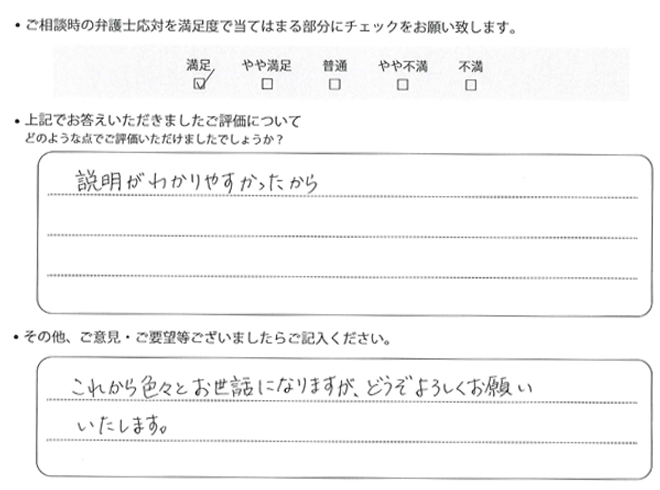 • ご相談時の弁護士応対を満足度で当てはまる部分にチェックをお願い致します。
満足 やや満足 普通 やや不満 不満
☑ □ □ □ □
• 上記でお答えいただきましたご評価について
どのような点でご評価いただけましたでしょうか？
説明がわかりやすかったから
• その他、ご意見・ご要望等ございましたらご記入ください。
これから色々とお世話になりますが、どうぞよろしくお願い
いたします。